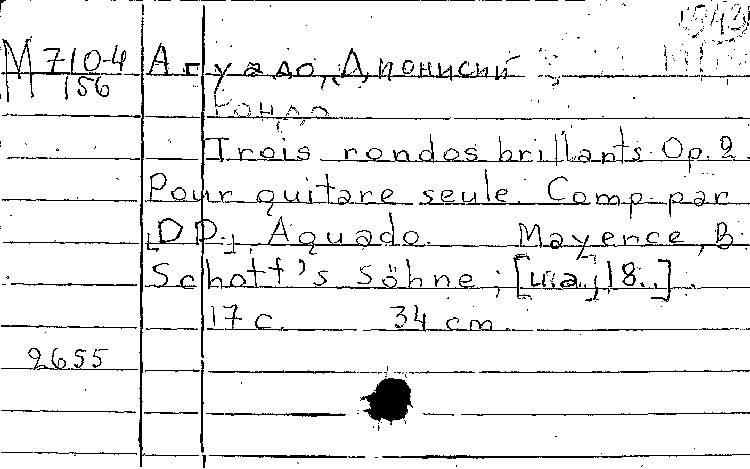 1543
М 710-4 Агуадо, Дионисий
М 156
Рондо
Trois rondos brillants Op. 2
Pour guitare seule. Comp. par
[D D.] Aguado. Mayence, B.
Schott's Söhne; [ш.а.; 18..].
17 с. 34 cm.
2655